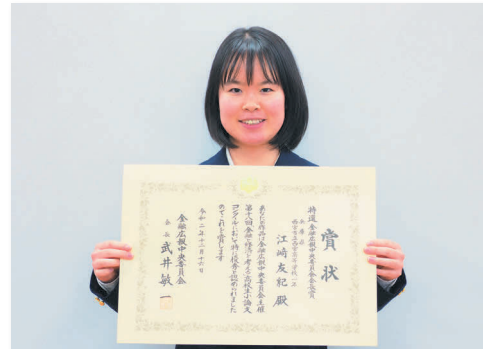 賞状
特選 金融広報中央委員会会長賞
兵庫県
江崎友紀殿
あなたの作品は金融広報中央委員会主催
第十八回金融と経済を考える高校生小論文
コンクールにおいて特に優秀と認められました
のでこれを賞します
令和二年十二月十六日
金融広報中央委員会
会長 武井敏一